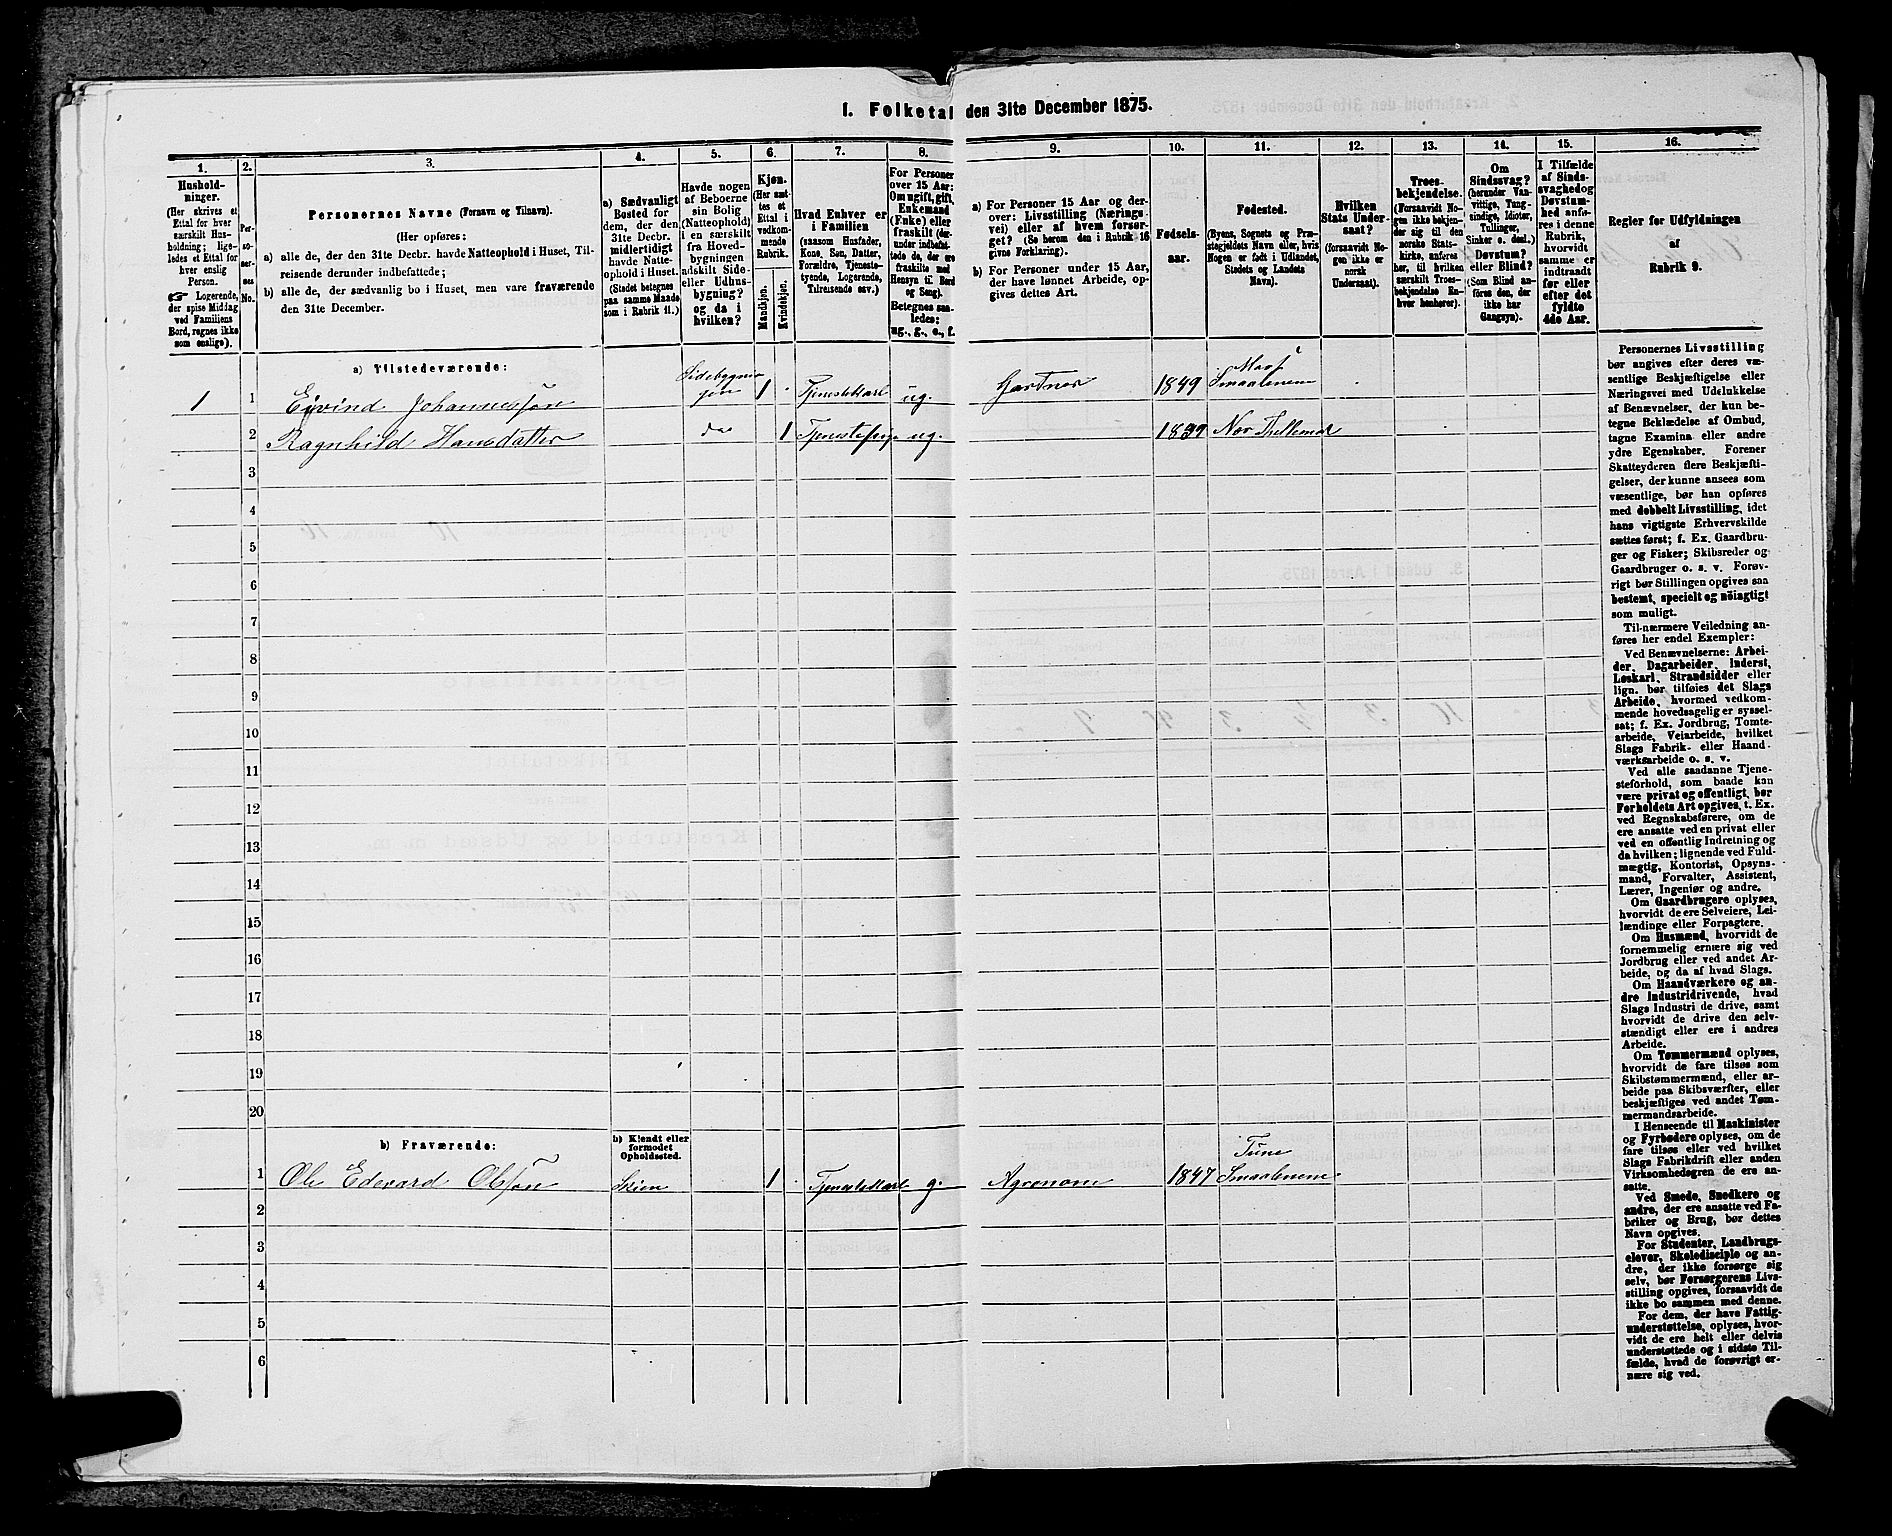 1. Folketal den 31te December 1875.
1.
Hushold-
ninger.
(Her skrives et
Ettal for hver
særskilt Hus-
holdning; lige-
ledes et Ettal for
hver enslig
Person.
☞ Logerende,
der spise Middag
ved Familiens
Bord, regnes ikke
som enslige).
2.
Per-
so-
ner-
nes
No.
3.
Personernes Navne (Fornavn og Tilnavn).
(Her opføres:
a) alle de, der den 31te Decbr. havde Natteophold i Huset, Til-
reisende derunder indbefattede;
b) alle de, der sædvanlig bo i Huset, men vare fraværende
den 31te December.
4.
a) Sædvanligt
Bosted for
dem, der den
31te Decbr.
midlertidigt
havde Natte-
ophold i Huset.
(Stedet betegnes
paa samme Maade
som i Rubrik 11.)
5.
Havde nogen
af Beboerne
sin Bolig
(Natteophold)
i en særskilt
fra Hoved-
bygningen
adskilt Side-
eller Udhus-
bygning?
og da i
hvilken?
6.
Kjøn.
(Her sæt-
tes et
Ettal i
vedkom-
mende
Rubrik.
Mandkjøn.
Kvindekjøn.
7.
Hvad Enhver er
i Familien
(saasom Husfader,
Kone, Søn, Datter,
Forældre, Tjeneste-
tyende, Logerende,
Tilreisende osv.)
8.
For Personer
over 15 Aar:
Om ugift, gift,
Enkemand
(Enke) eller
fraskilt (der-
under indbefat-
tede de, der ere
fraskilte med
Hensyn til Bord
og Seng).
Betegnes saa-
ledes:
ug., g., e., f.
9.
a) For Personer 15 Aar og der-
over: Livsstilling (Nærings-
vei) eller af hvem forsør-
get? (Se herom den i Rubrik 16
givne Forklaring).
b) For Personer under 15 Aar,
der have lønnet Arbeide, op-
gives dettes Art.
10.
Fødsels-
aar.
11.
Fødested.
(Byens, Sognets og Præ-
stegjeldets Navn eller, hvis
Nogen er født i Udlandet,
Stedets og Landets
Navn).
12.
Hvilken
Stats Under-
saat?
(forsaavidt No-
gen ikke er
norsk
Undersaat).
13.
Troes-
bekjendelse.
(Forsaavidt No-
gen ikke bekjen-
der sig til den
norske Stats-
kirke, anføres
her, til hvilken
særskilt Troes-
bekjendelse En-
hver henhører).
14.
Om
Sindssvag?
(herunder Van-
vittige, Tung-
sindige, Idioter,
Tullinger,
Sinker o. desl.)
Døvstum?
eller Blind?
(Som Blind an-
føres den, der
ikke har
Gangsyn).
15.
I Tilfælde
af Sinds-
svaghed og
Døvstum-
hed anfø-
res i denne
Rubrik,
hvorvidt
samme er
indtraadt
før eller
efter det
fyldte
4de Aar.
16.
Regler for Udfyldningen
af
Rubrik 9.
a) Tilstedeværende:
1 1 Eivind Johannessøn Sidebygnin
gen 1 Tjenestekarl ug. Gartner 1849 Smaalenene
2 Ragnhild Hansdatter do 1 Tjenestepige ug. 1839 Thellemar
3
4
5
6
7
8
9
10
11
12
13
14
15
16
17
18
19
20
b) Fraværende:
b) Kjendt eller
formodet
Opholdssted.
1 Ole Edevard Olssøn Skien 1 Tjenestekarl g. Agronom 1847 Tune
Smaalenene
2
3
4
5
6
Personernes Livsstilling
bør angives efter deres væ-
sentlige Beskjæftigelse eller
Næringsvei med Udelukkelse
af Benævnelser, der kun be-
tegne Beklædelse af Ombud,
tagne Examina eller andre
ydre Egenskaber. Forener
Skatteyderen flere Beskjæfti-
gelser, der kunne ansees som
væsentlige, bør han opføres
med dobbelt Livsstilling, idet
hans vigtigste Erhvervskilde
sættes først; f. Ex. Gaardbru-
ger og Fisker; Skibsreder og
Gaardbruger o. s. v. Forøv-
rigt bør Stillingen opgives saa
bestemt, specielt og nöiagtigt
som muligt.
Til-nærmere Veiledning an-
føres her endel Exempler:
Ved Benævnelserne: Arbei-
der, Dagarbeider, Inderst,
Løskarl, Strandsidder eller
lign. bør tilføies det Slags
Arbeide, hvormed vedkom-
mende hovedsagelig er syssel-
sat; f. Ex. Jordbrug, Tomte-
arbeide, Veiarbeide, hvilket
Slags Fabrik- eller Haand-
værksarbeide o. s. v.
Ved alle saadanne Tjene-
steforhold, som baade kan
være privat og offentligt, bør
Forholdets Art opgives, t. Ex.
ved Regnskabsførere, om de
ere ansatte ved en privat eller
ved en offentlig Indretning og
da hvilken; lignende ved Fuld-
mægtig, Kontorist, Opsyns-
mand, Forvalter, Assistent,
Lærer, Ingeniør og andre.
Om Gaardbrugere oplyses,
hvorvidt de ere Selveiere, Lei-
lændinge eller Forpagtere.
Om Husmænd, hvorvidt de
fornemmelig ernære sig ved
Jordbrug eller ved andet Ar-
beide, og da af hvad Slags.
Om Haandværkere og an-
dre Industridrivende, hvad
Slags Industri de drive, samt
hvorvidt de drive den selv-
stændigt eller ere i andres
Arbeide.
Om Tømmermænd oplyses,
hvorvidt de fare tilsøs som
Skibstømmermænd, eller ar-
beide paa Skibsværfter, eller
beskjæftiges ved andet Tøm-
mermandsarbeide.
I Henseende til Maskinister
og Fyrbødere oplyses, om de
fare tilsøs eller ved hvilket
Slags Fabrikdrift eller anden
Virksomhedsgren de ere an-
satte.
Ved Smede, Snedkere og
andre, der ere ansatte ved Fa-
briker og Brug, bør dettes
Navn opgives.
For Studenter, Landbrugs-
elever, Skoledisciple og an-
dre, der ikke forsørge sig
selv, bør Forsørgerens Livs-
stilling opgives, forsaavidt de
ikke bo sammen med denne.
For dem, der have Fattig-
understøttelse, oplyses, hvor-
vidt de ere helt eller delvis
understøttede og i sidste Til-
fælde, hvad de forøvrigt er-
nære sig ved.